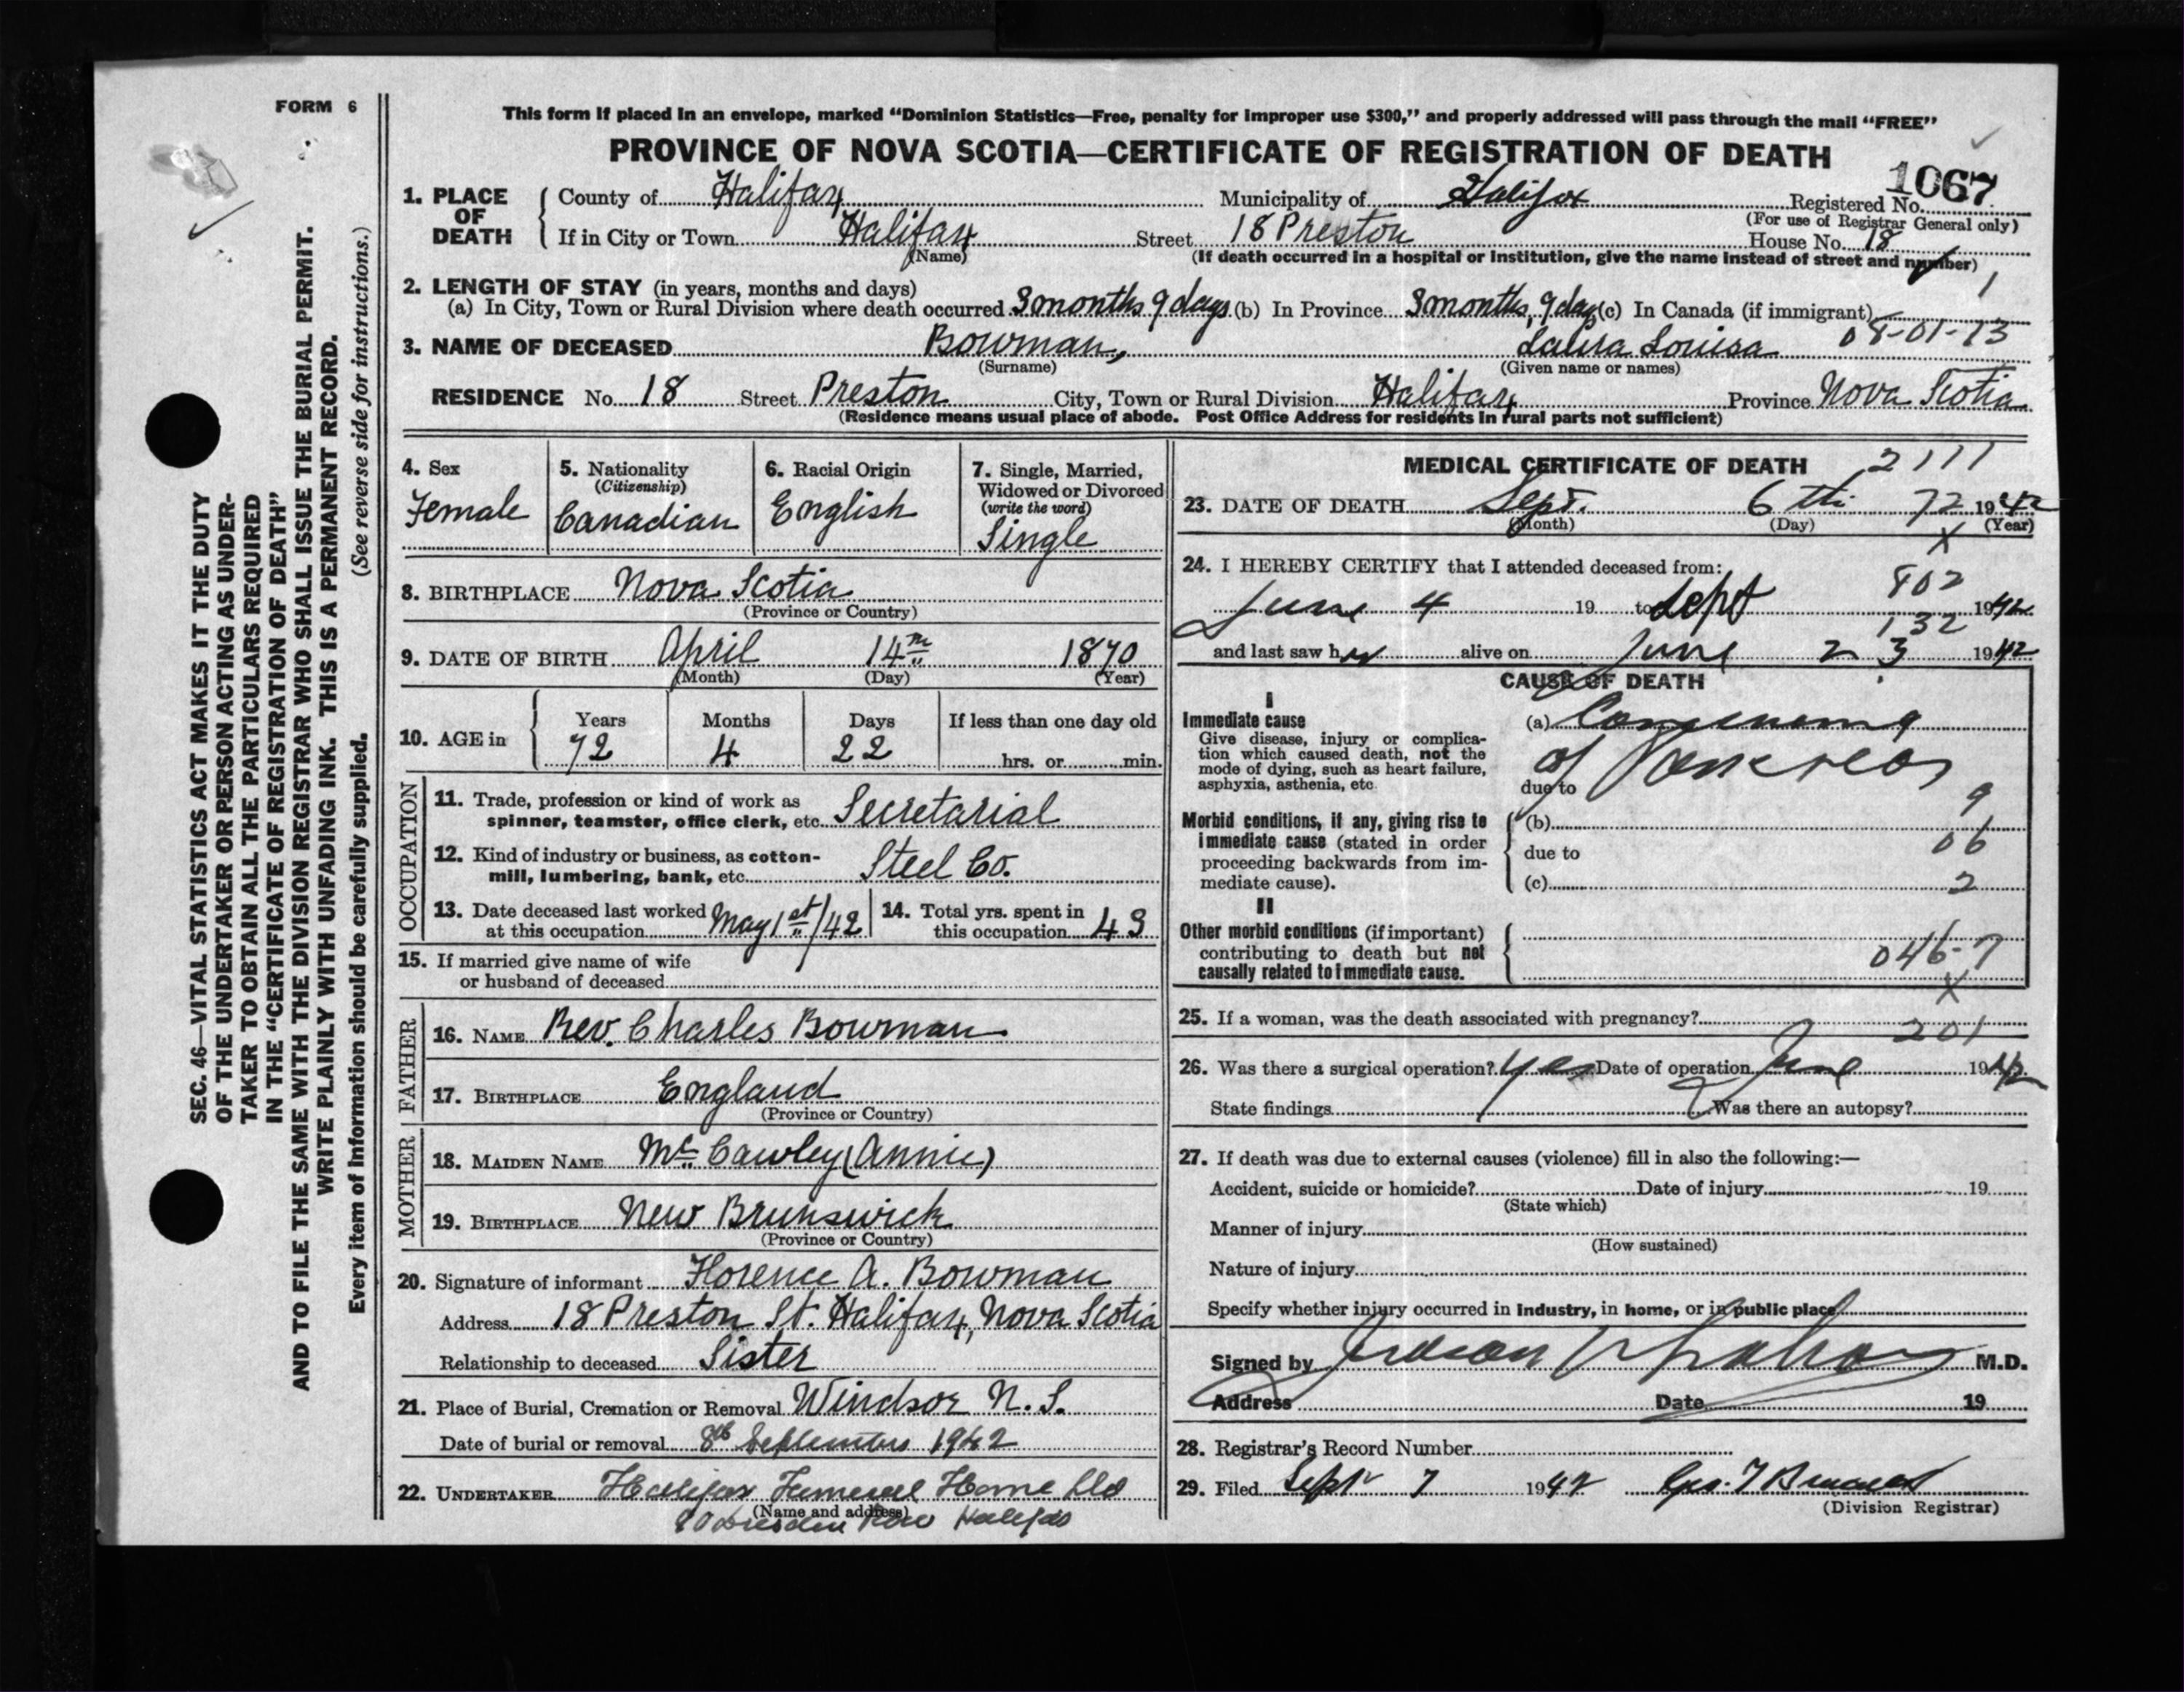 FORM 6
This form if placed in an envelope, marked "Dominion Statistics—Free, penalty for improper use $300," and properly addressed will pass through the mail "FREE"
PROVINCE OF NOVA SCOTIA—CERTIFICATE OF REGISTRATION OF DEATH
1067
1. PLACE OF DEATH County of Halifax Municipality of Halifax Registered No.
(For use of Registrar General only)
If in City or Town Halifax Street 18 Preston House No. 18
(Name) (If death occurred in a hospital or institution, give the name instead of street and number)
2. LENGTH OF STAY (in years, months and days)
1
(a) In City, Town or Rural Division where death occurred 3 months 9 days (b) In Province 3 months, 9 days (c) In Canada (if immigrant)
08-01-13
3. NAME OF DECEASED Bowman, Laura Louisa
(Surname) (Given name or names)
RESIDENCE No. 18 Street Preston City, Town or Rural Division Halifax Province Nova Scotia
(Residence means usual place of abode. Post Office Address for residents in rural parts not sufficient)
4. Sex
Female
5. Nationality
(Citizenship)
Canadian
6. Racial Origin
English
7. Single, Married,
Widowed or Divorced
(write the word)
Single
8. BIRTHPLACE Nova Scotia
(Province or Country)
9. DATE OF BIRTH April 14th 1870
(Month) (Day) (Year)
10. AGE in Years Months Days If less than one day old
72 4 22 hrs. or min.
OCCUPATION
11. Trade, profession or kind of work as
spinner, teamster, office clerk, etc. Secretarial
12. Kind of industry or business, as cotton-
mill, lumbering, bank, etc. Steel Co.
13. Date deceased last worked
at this occupation May 1st/42
14. Total yrs. spent in
this occupation 43
15. If married give name of wife
or husband of deceased
FATHER
16. NAME Rev. Charles Bowman
17. BIRTHPLACE England
(Province or Country)
MOTHER
18. MAIDEN NAME McCawley (Annie)
19. BIRTHPLACE New Brunswick
(Province or Country)
20. Signature of informant Florence A. Bowman
Address 18 Preston St. Halifax, Nova Scotia
Relationship to deceased Sister
21. Place of Burial, Cremation or Removal Windsor N.S.
Date of burial or removal 8th September 1942
22. UNDERTAKER Halifax Funeral Home Ltd
(Name and address)
90 Dresden Row Halifax
MEDICAL CERTIFICATE OF DEATH 2111
23. DATE OF DEATH Sept. 6th 72 1942
(Month) (Day) X (Year)
24. I HEREBY CERTIFY that I attended deceased from:
802
June 4 19 to Sept 1942
132
and last saw her alive on June 23 1942
CAUSE OF DEATH
I
Immediate cause
Give disease, injury or complica-
tion which caused death, not the
mode of dying, such as heart failure,
asphyxia, asthenia, etc
(a)
of Pancreas
due to
9
Morbid conditions, if any, giving rise to
immediate cause (stated in order
proceeding backwards from im-
mediate cause).
(b)
06
due to
(c) 2
II
Other morbid conditions (if important)
contributing to death but not
causally related to immediate cause.
046-7
X
25. If a woman, was the death associated with pregnancy?
201
26. Was there a surgical operation? Yes Date of operation June 1942
State findings Was there an autopsy?
27. If death was due to external causes (violence) fill in also the following:—
Accident, suicide or homicide? Date of injury 19
(State which)
Manner of injury
(How sustained)
Nature of injury
Specify whether injury occurred in industry, in home, or in public place
Signed by M.D.
Address Date 19
28. Registrar's Record Number
29. Filed Sept 7 1942 Geo. F
(Division Registrar)
SEC. 46—VITAL STATISTICS ACT MAKES IT THE DUTY
OF THE UNDERTAKER OR PERSON ACTING AS UNDER-
TAKER TO OBTAIN ALL THE PARTICULARS REQUIRED
IN THE "CERTIFICATE OF REGISTRATION OF DEATH"
AND TO FILE THE SAME WITH THE DIVISION REGISTRAR WHO SHALL ISSUE THE BURIAL PERMIT.
WRITE PLAINLY WITH UNFADING INK. THIS IS A PERMANENT RECORD.
Every item of information should be carefully supplied. (See reverse side for instructions.)